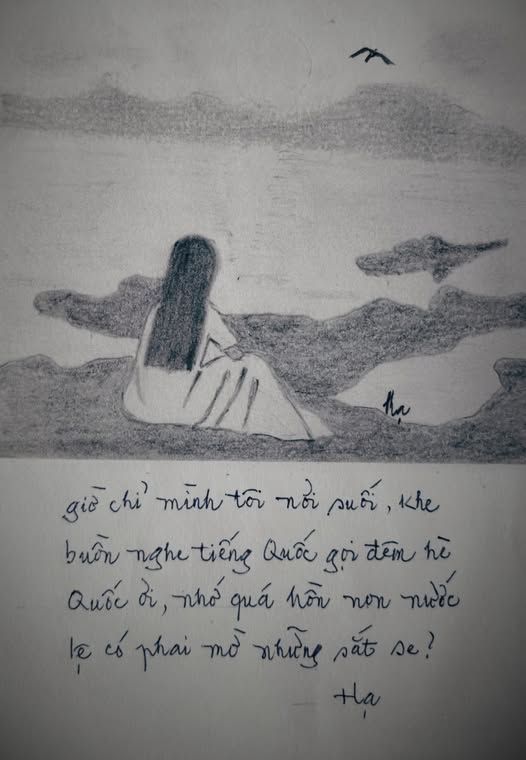 Hạ
giờ chỉ mình tôi nơi suối, khe
buồn nghe tiếng Quốc gọi đêm hè
Quốc ơi, nhớ quá hồn non nước
lệ có phai mờ những sắt se?
Hạ